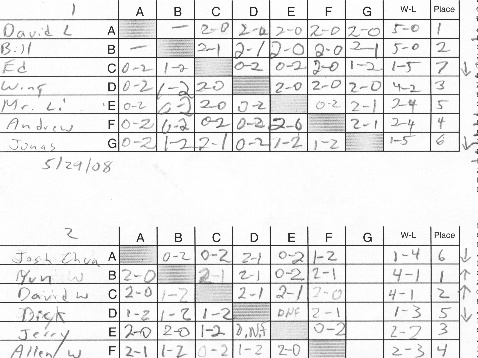 1 A B C D E F G W-L Place
David L A — 2-0 2-0 2-0 2-0 2-0 5-0 1
Bill B — 2-1 2-1 2-0 2-0 2-1 5-0 2
Ed C 0-2 1-2 0-2 0-2 2-0 1-2 1-5 7 ↓
Wing D 0-2 1-2 2-0 2-0 2-0 2-0 4-2 3
Mr. Li E 0-2 0-2 2-0 0-2 0-2 2-1 2-4 5
Andrew F 0-2 0-2 0-2 0-2 2-0 2-1 2-4 4
Jonas G 0-2 1-2 2-1 0-2 1-2 1-2 1-5 6 ↓
5/29/08
2 A B C D E F G W-L Place
Josh Chua A 0-2 0-2 2-1 0-2 1-2 1-4 6 ↓
Yun W B 2-0 2-1 2-1 0-2 2-1 4-1 1 ↑
David W C 2-0 1-2 2-1 2-1 2-0 4-1 2 ↑
Dick D 1-2 1-2 1-2 DNF 2-1 1-3 5 ↓
Jerry E 2-0 2-0 1-2 DNF 0-2 2-2 3
Allen W F 2-1 1-2 0-2 1-2 2-0 2-3 4